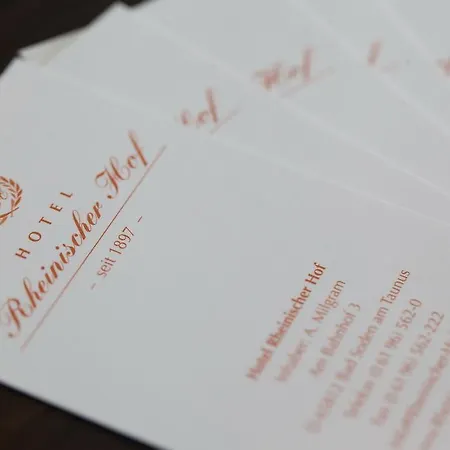 HOTEL
Rheinischer Hof
- seit 1897 -
Hotel Rheinischer Hof
Inhaber: A. Milgram
Am Bahnhof 3
Bad Soden am Taunus
Telefon (0 61 96) 562-0
Fax (0 61 96) 562-222
Hof
Hof